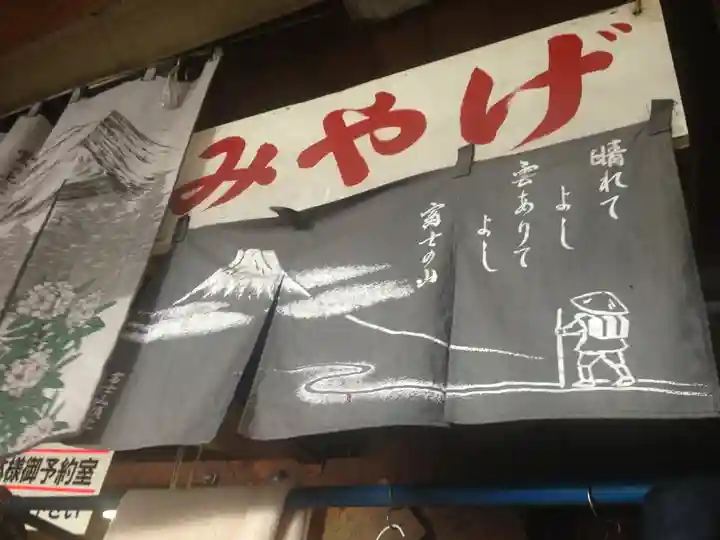 みやげ
晴れて
よし
雲ありて
よし
富士の山
様御予約室